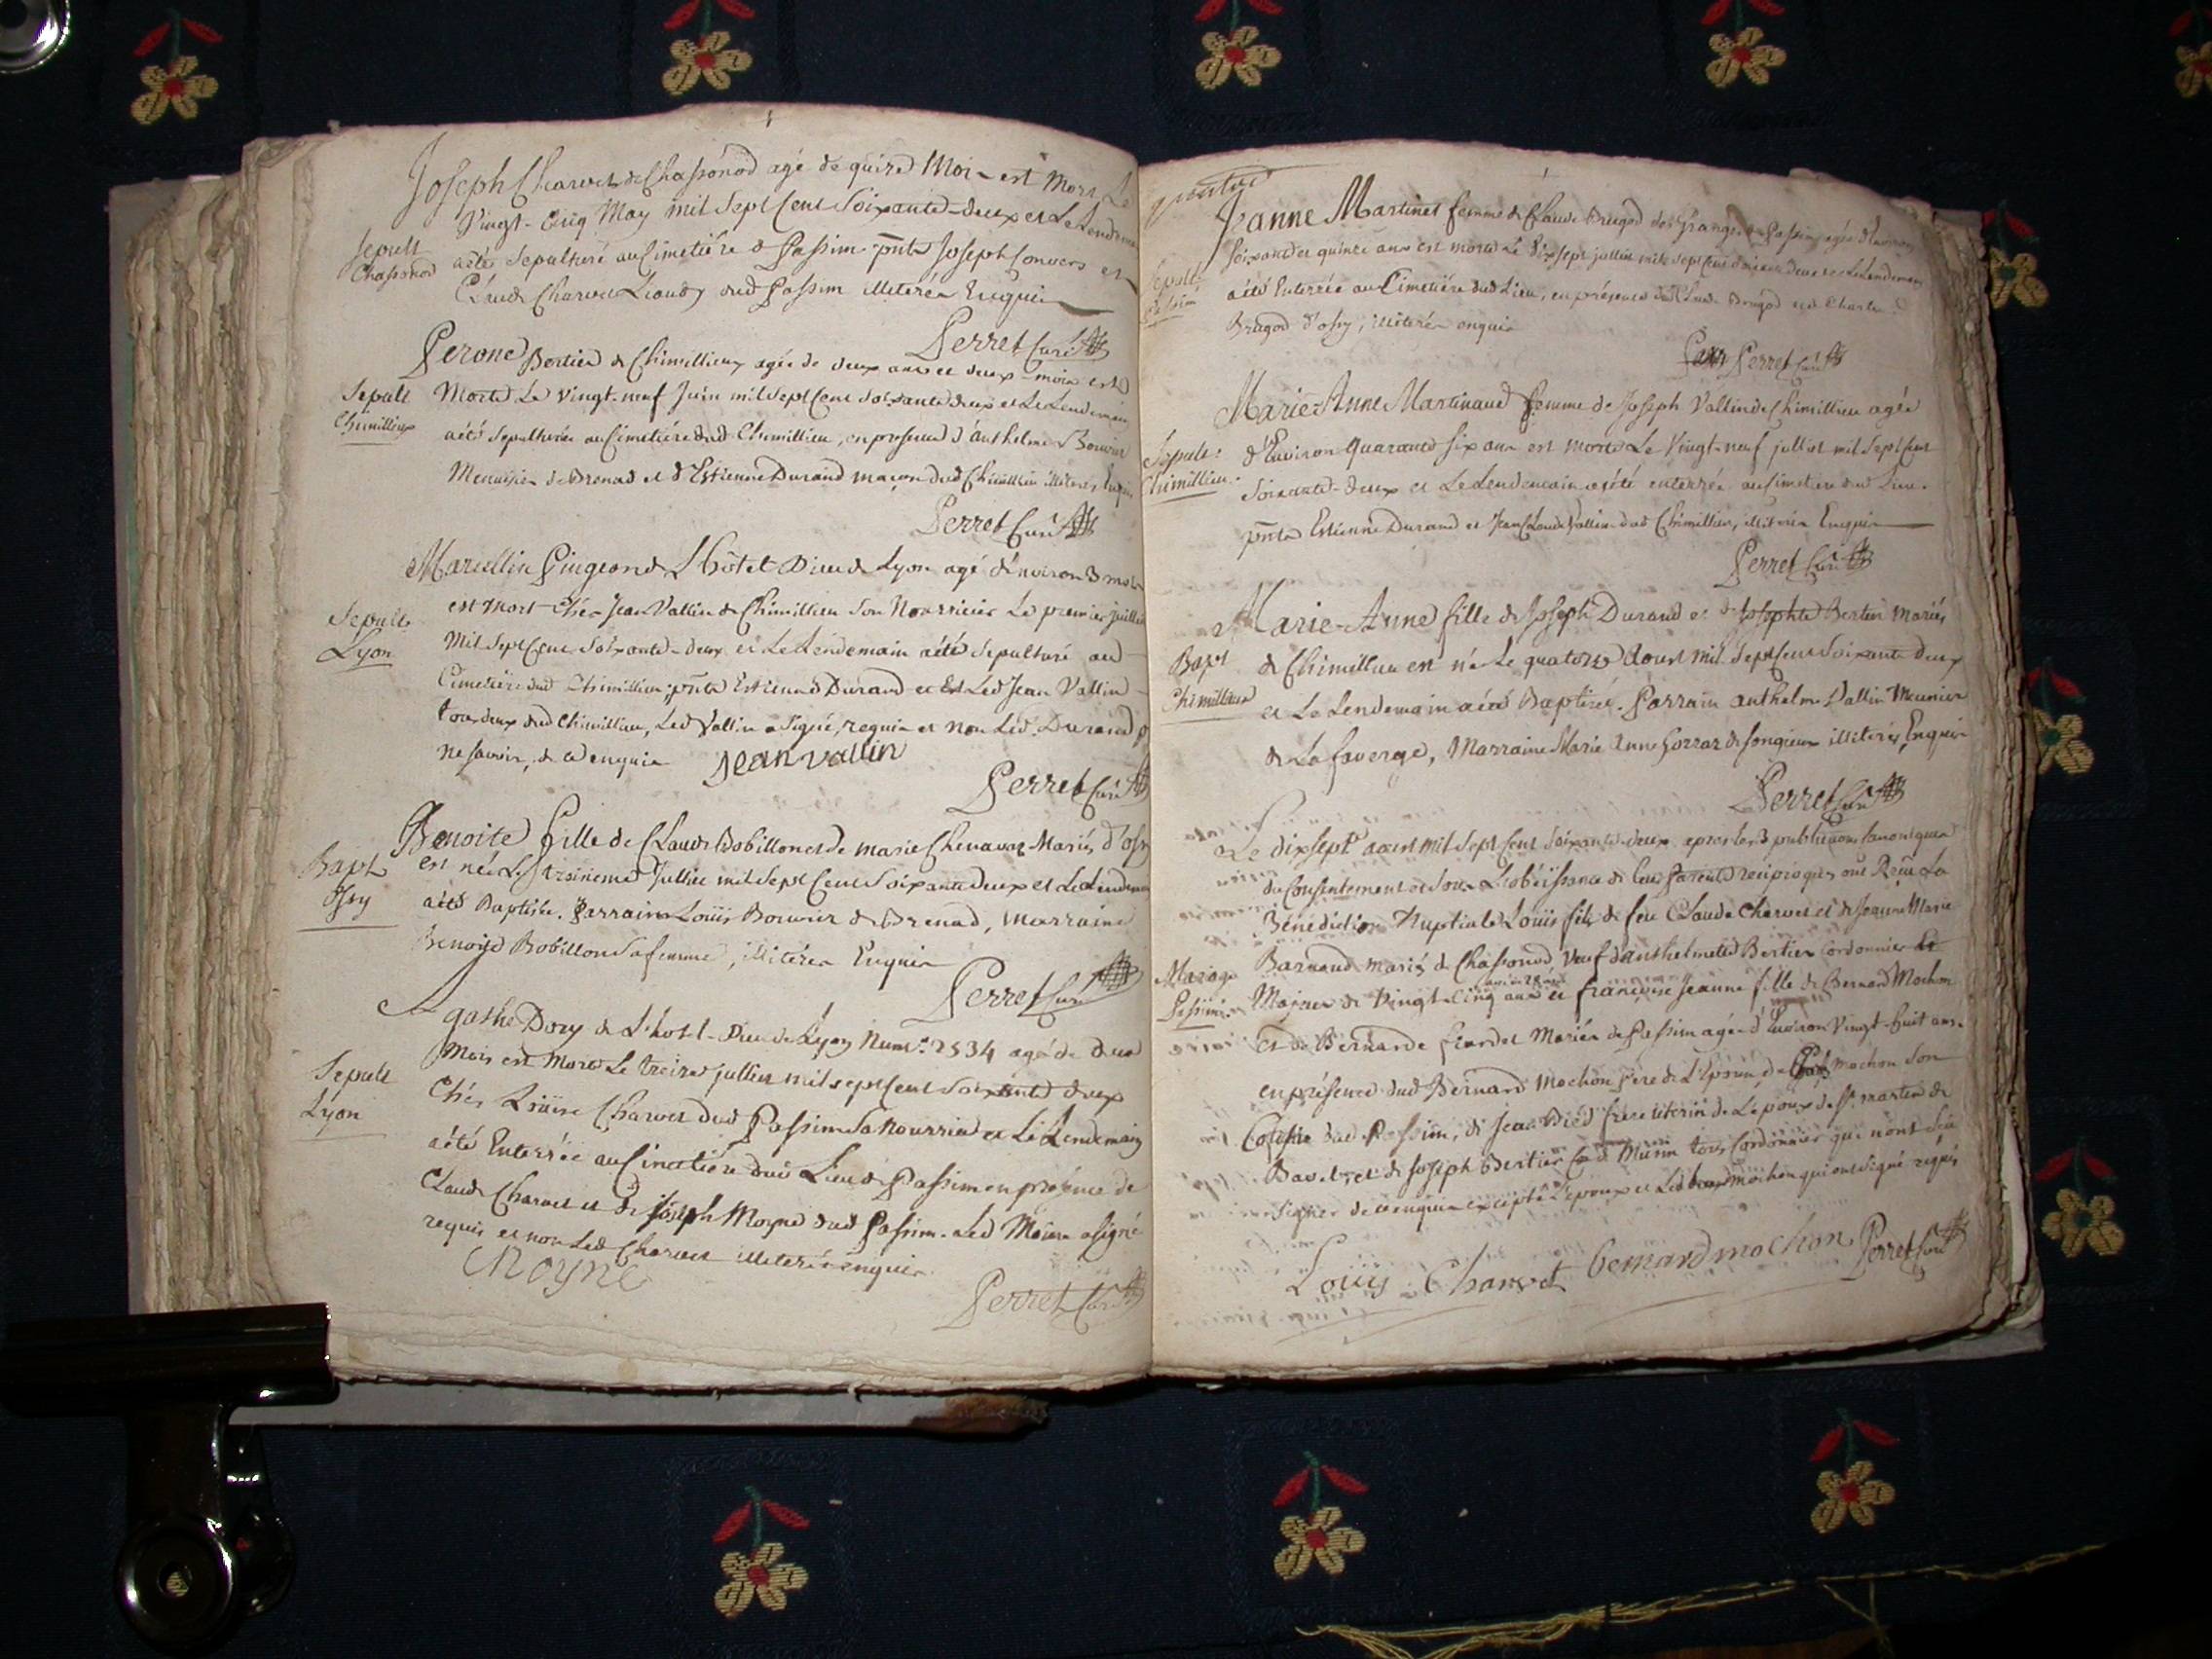 Joseph Charvet de Chassonod agé de quinze Mois est Mort Le
Vingt-Cinq May mil sept Cent Soixante-deux et Le Lendemain
Sepult
Chassonod
a été Sepulturé au Cimetiére de Passim pnts Joseph Convers et
Claude Charvet dud Passim illiterés Enquis
Perret Curé
Perone Bertier de Chimillieux agée de deux ans et deux mois est
Sepult
Chimillieux
Morte Le Vingt-neuf Juin mil Sept Cent Soixante deux et Le Lendemain
a été Sepulturée au Cimetiére dud Chimillieu, en presence d'anthelme Bouvier
Meunier de Brenad et d'Estienne Durand maçon dud Chimillieu illiterés Enquis
Perret Curé
Marcellin Pingeon de L'hôtel Dieu de Lyon agé d'environ 3 mois
Sepult
Lyon
est Mort chés Jean Vallin de Chimillieu Son Nourricier Le premier juillet
Mil Sept Cent Soixante-deux et Le Lendemain a été Sepulturé au
Cimetiére dud Chimillieu, pnts Estienne Durand et Led Jean Vallin
tous deux dud Chimillieu, Led Vallin a Signé, requis et non Led. Durand p
ne Savoir, de ce enquis Jean vallin
Perret Curé
Benoite fille de Claude Bobillon et de marie Chenavaz Mariés d'ossy
Bapt
ossy
est née Le troisieme Juillet mil Sept Cent Soixante deux et Le Lendemain
a été Baptisée. Parrain Louis Bouvier de Brenad, Marraine
Benoite Bobillon Sa femme, illiterés Enquis
Perret Curé
Agathe Dory de L'hotel-Dieu de Lyon Num.o 2534 agée de deux
Sepult
Lyon
Mois est Morte Le treize juillet mil sept Cent Soixante deux
Chés Loüise Charvet dud Passim Sa Nourrice et Le Lendemain
a été Enterrée au Cimetiére dud Lieu de Passim en présence de
Claude Charvet et de Joseph Moyne dud Passim. Led Moine a Signé
requis et non Led Charvet illiteré enquis
Moyne
Perret Curé
Jeanne Martinet femme de Claude Brugod des Granges de Passim agée d'Environ
Sepult.
Passim
Soixante quinze ans est morte Le dix sept juillet mil sept Cent Soixante deux et Le Lendemain
a été Enterrée au Cimetiére dud Lieu, en présence dud Claude Brugod et de Charle
Brugod d'ossy, illiterés enquis
Perret Curé
Marie-Anne Martinaud femme de Joseph Vallin de Chimillieu agée
Sepult:
Chimillieu.
d'Environ Quarante Six ans est morte Le Vingt-neuf juillet mil Sept Cent
Soixante-deux et Le Lendemain a été enterrée au Cimetiere dud Lieu.
pnts Estienne Durand et Jean Claude Vallin dud Chimillieu, illiterés Enquis
Perret Curé
Marie-Anne fille de Joseph Durand et de Josephte Bertier Mariés
Bapt
Chimillieu
de Chimillieu est née Le quatorze Aoust mil Sept Cent Soixante deux
et Le Lendemain a été Baptisée. Parrain anthelme Vallin Meunier
de La faverge, Marraine Marie Anne Gorraz de Songieux illiterés Enquis
Perret Curé
Le dix sept aoust mil Sept Cent Soixante-deux apres les 3 publications Canoniques
du Consentement et Sous L'obéissance de leurs Parents réciproques ont Reçu La
Bénédiction Nuptiale Louis fils de feu Claude Charvet et de Jeanne Marie
Mariage
Passim
Barnaud mariés de Chassonod Veuf d'anthelmette Bertier Cordonnier
Majeur de Vingt-Cinq ans et françoise Jeanne fille de Bernard Mochon
et de Bernarde Mariés de Passim agée d'Environ Vingt-huit ans.
en présence dud Bernard Mochon pere de L'Epouse, de mochon Son
dud Passim, de Jean frere uterin de L'époux de St. martin de
Bavel, et de Joseph Bertier tous Cordonnier qui n'ont Sçu
Signer de ce enquis excepté L'époux et Led mochon qui ont Signé requis
Louis Charvet bernard mochon Perret Curé